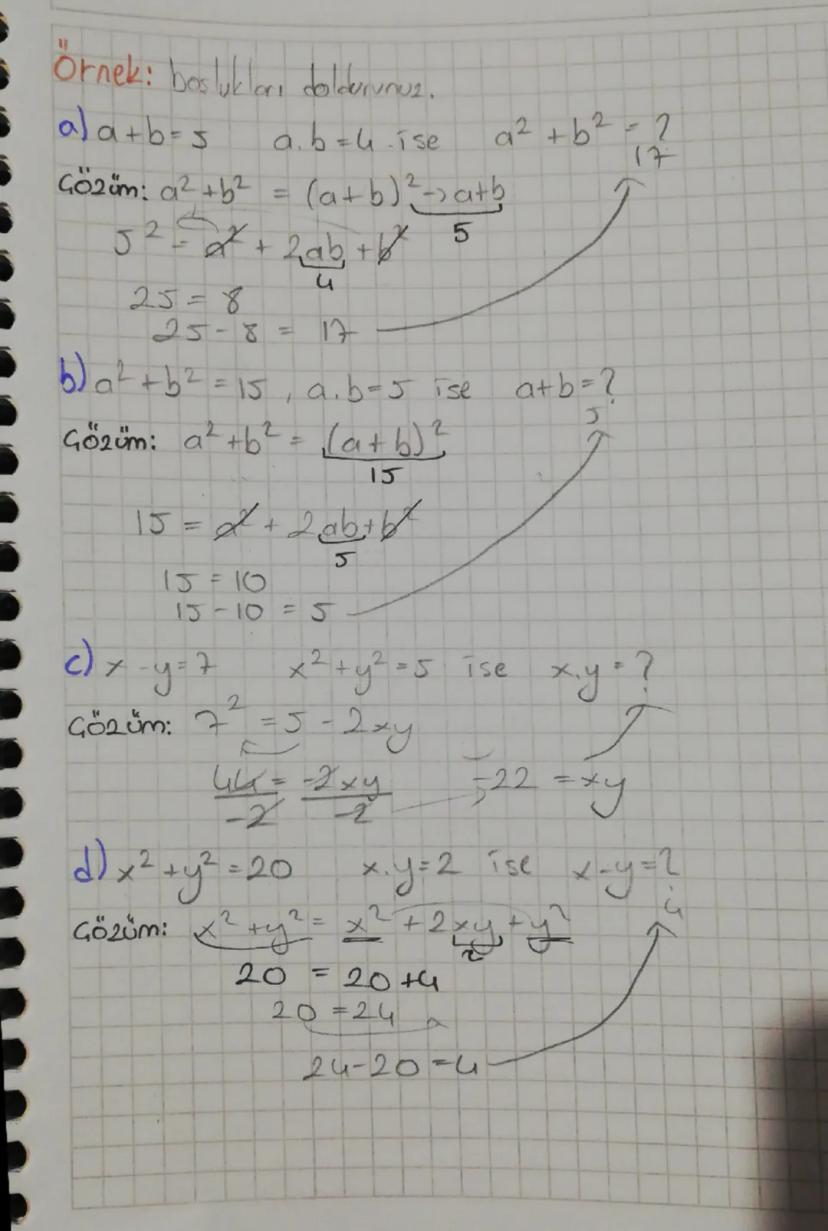 Örnek: boşlukları doldurunuz.
a) a+b=5 a.b=4 ise a² + b² = ?
17
Çözüm: a² + b² = (a+b)² → a+b
5
5² = a² + 2ab + b²
4
25 = 8
25 - 8 = 17
b) a² + b² = 15, a.b=5 ise a+b=?
5
Çözüm: a² + b² = (a+b)²
15
15 = a² + 2ab + b²
5
15 = 10
15 - 10 = 5
c) x - y = 7 x² + y² = 5 ise x.y = ?
Çözüm: 7² = 5 - 2xy
44 = -2xy -22 = xy
-2 -2
d) x² + y² = 20 x.y=2 ise x-y=?
4
Çözüm: x² + y² = x² + 2xy + y²
2
20 = 20+4
20 = 24
24-20=4